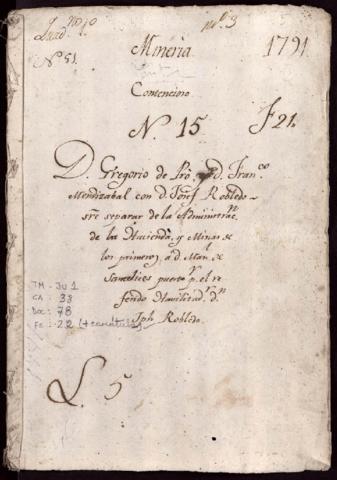 Quad.no 1o
no 3
No 51.
Mineria
1791
Contencioso
N. 15
F 21.
D. Gregorio de Pro, y d. Franco
Mendizabal con d. Josef Robledo
sre separar de la Administracn
de la Hacienda, y Minas de
los primeros, a d. Manl de
puesto pr. el re
ferido d.n
Jph Robledo.
TM - JU 1
CA : 38
DOC : 78
Fs : 22 (+ carátula)
L. 5